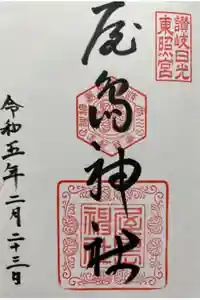 讃岐日光
東照宮
屋島神社
令和五年二月二十三日